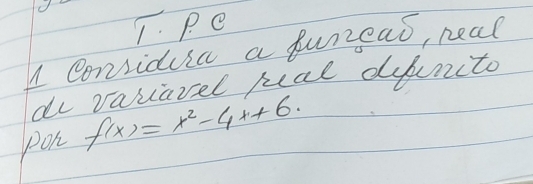 T.P.C
1 Considera a função, real
de variavel real definito
por f(x) = x² - 4x + 6.